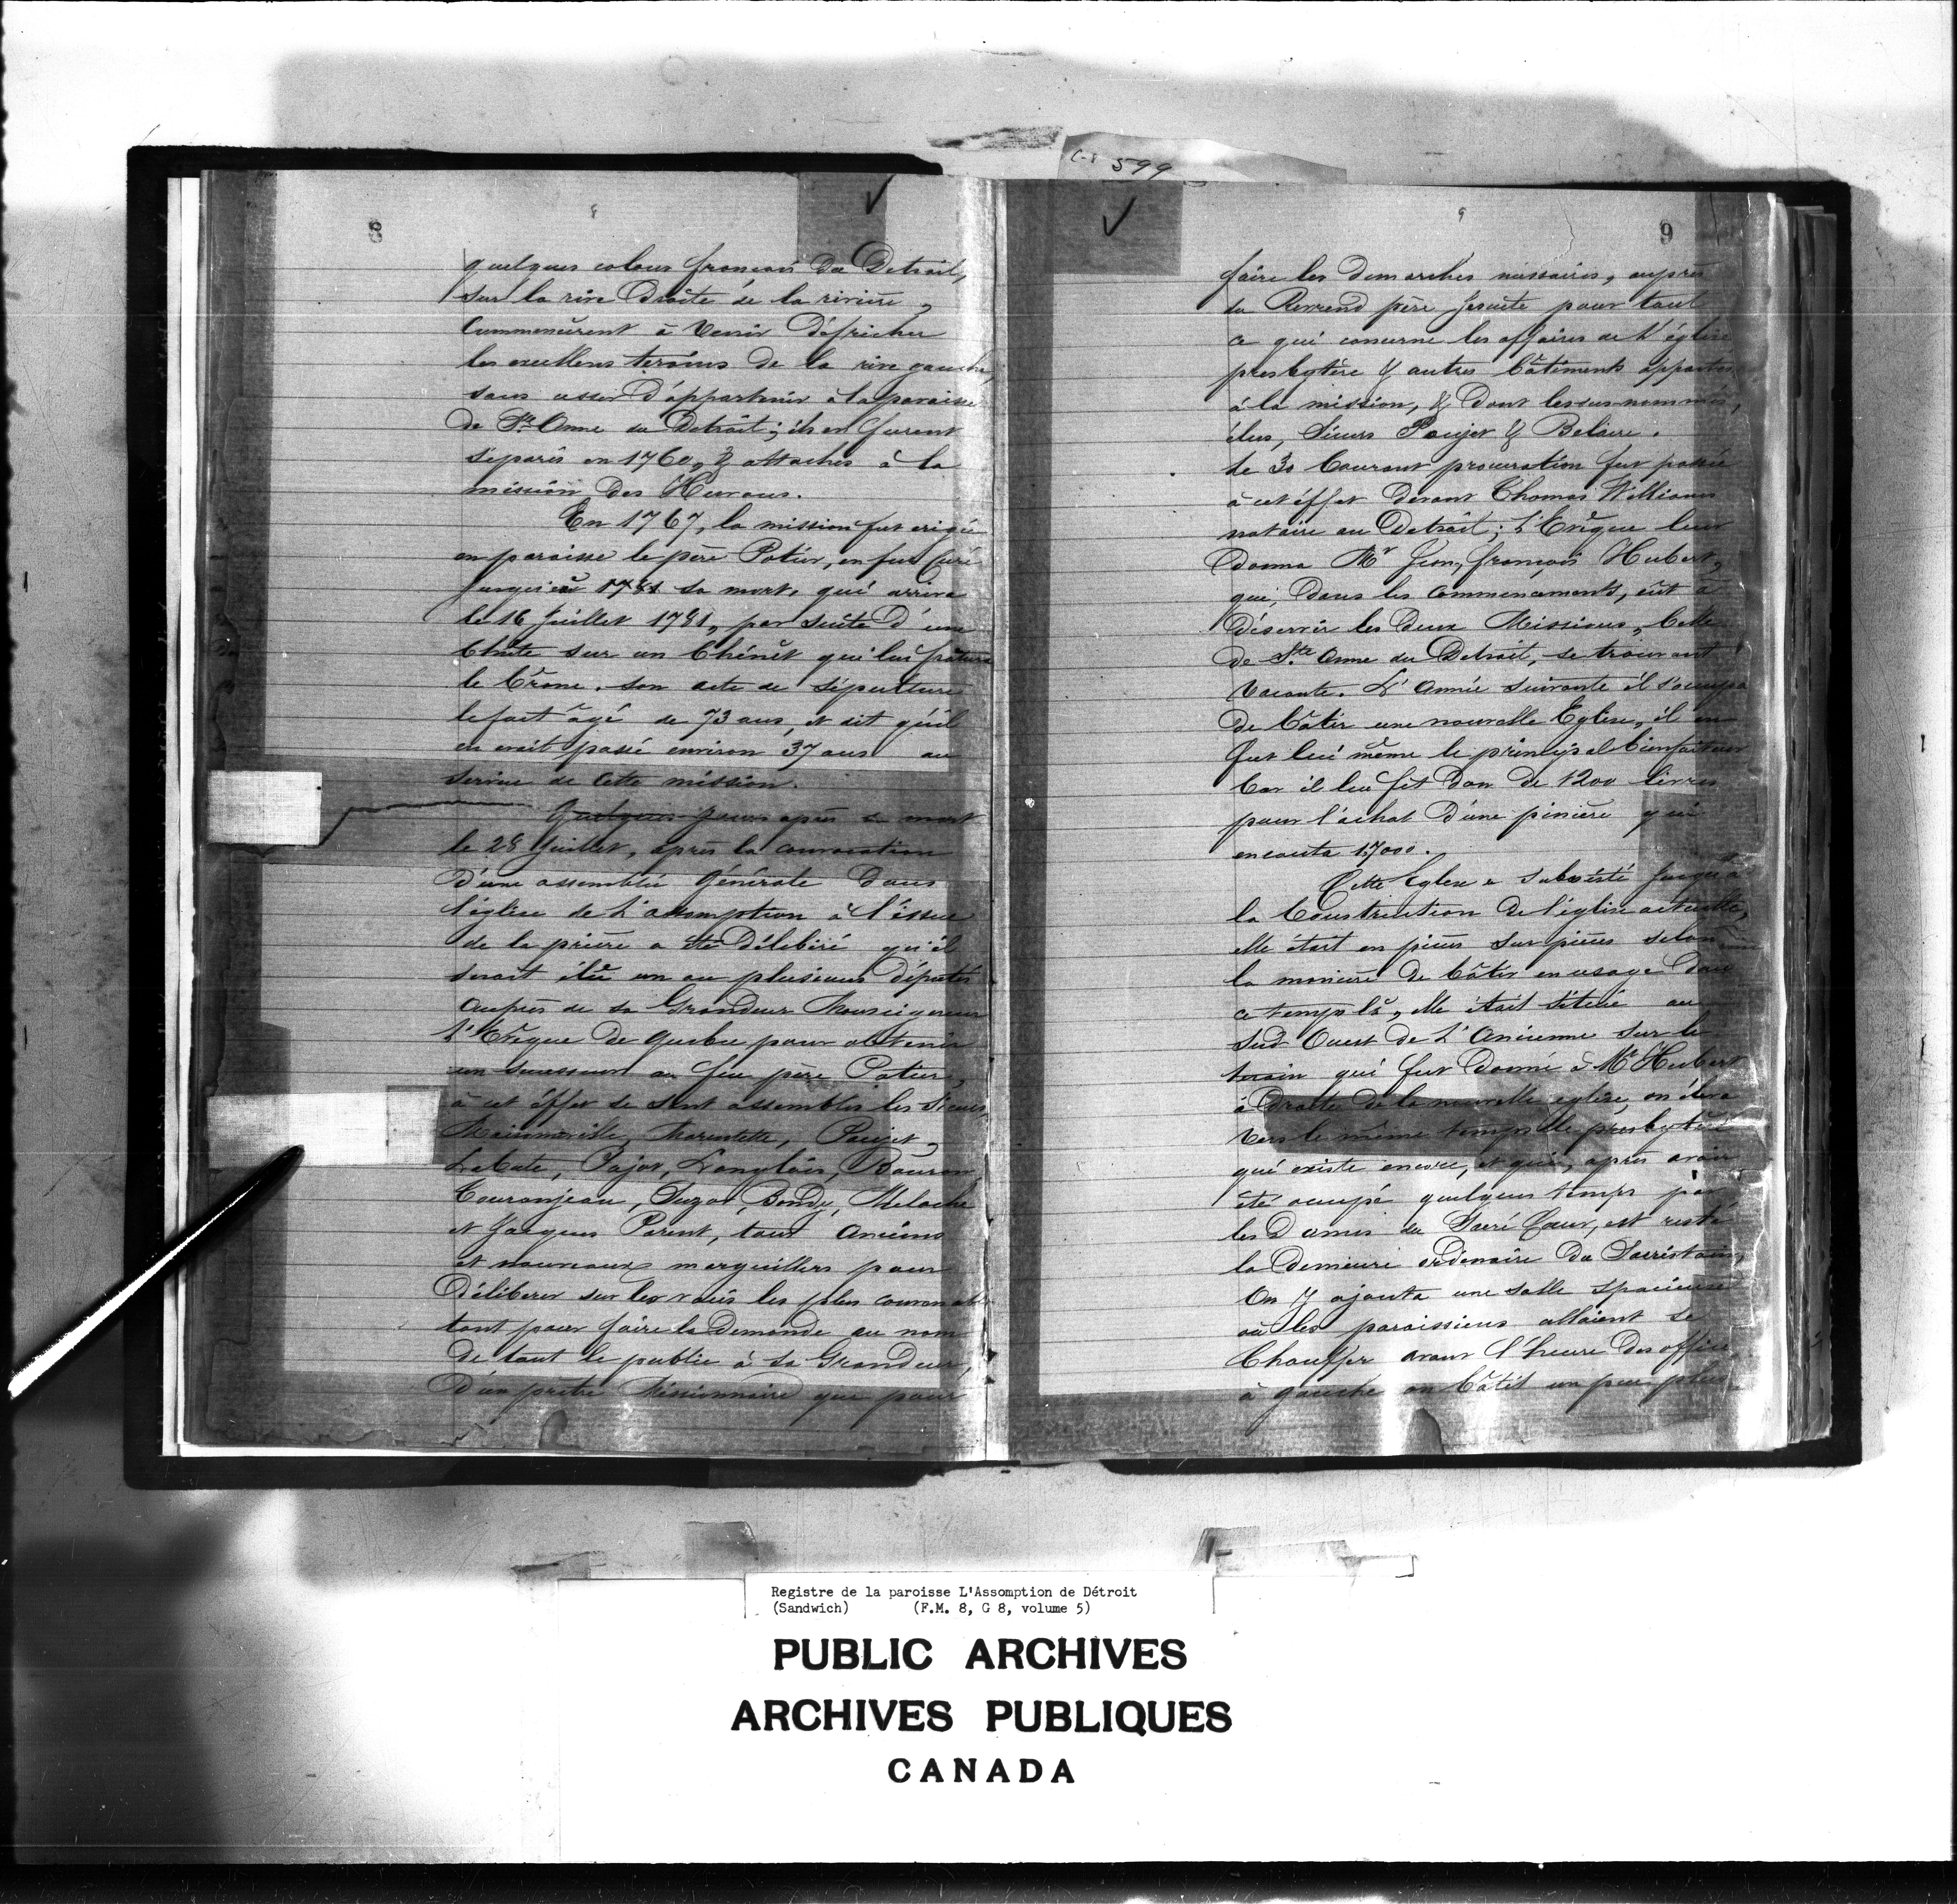 C-8 599
8
8
quelques colons français du Detroit,
sur la rive Droite de la rivière,
Commencèrent à Venir Défricher
les excellens terains de la rive gauche,
sans cesser D'appartenir à la paroisse
de Ste Anne du Detroit; ils en furent
séparés en 1760, & attachés à la
mission Des Hurons.
En 1767, la mission fut erigée
en paroisse le père Potier, en fut Curé
jusqu'à 1781 sa mort, qui arriva
le 16 Juillet 1781, par suite D'une
Chute sur un Chénêt qui lui fratura
le Crâne. son acte de sépulture
le fait âgé de 73 ans, et dit qu'il
en avait passé environ 37 ans au
service de Cette mission.
Quelques jours après sa mort
le 28 Juillet, après la convocation
D'une assemblée Générale Dans
l'église de L'assomption à l'issue
de la prière a été Délibéré qu'il
serait élu un ou plusieurs Députés
Auprès de sa Grandeur Monseigneur
L'Evêque De Quebec pour obtenir
un successeur au feu père Potier,
à cet éffet se sont assemblés les Sieurs
Maisonville, Marentette, Poujet,
Labute, Pajot, Langlois, Bouron,
Touranjeau, Suzor, Bondy, Meloche
et Jacques Parent, tous Anciens
et nouveaux marguilliers pour
Déliberer sur les voies les plus convenab
tant pour faire la Demande au nom
De tout le public à Sa Grandeur,
D'un prêtre Missionnaire que pour
9
9
faire les Demarches nessaires, auprès
du Reverend père Jesuite pour tout
ce qui concerne les affaires de l'église
presbytère & autres bâtiments appartes
à la mission, & Dont les sus-nommés,
élus, Sieurs Poujet & Belaire.
Le 30 Courant procuration fut passée
à cet éffet Devant Thomas Williams
notaire au Detroit; L'Evêque leur
Donna Mr Jean, françois Hubert,
qui, Dans les Commencements, eût à
Déservir les Deux Missions, Celle
De Ste Anne du Detroit, se trouvant
Vacante. L'Année suivante il s'occupa
De bâtir une nouvelle Eglise, il en
fut lui même le principal bienfaiteur
Car il leu fit Don de 1200 livres
pour l'achat D'une pinière qui
en couta 1,7000.
Cette Eglise a subsisté jusqu'à
la Construction De l'église actuelle,
elle était en pièces sur pièces selon
la manière De bâtir en usage Dans
ce temps là, elle était située au
Sud Ouest de L'Ancienne sur le
terrain qui fut Donné à Mr Hubert
à Droite De la nouvelle église, on éleva
Vers le même temps le presbytère
qui existe encore, et qui, après avoir
été occupé quelques temps par
les Dames du Sacré Cœur, est resté
la Demeure ordinaire Du Sacristain,
On y ajouta une salle spacieuse
où les paroissiens allaient se
Chauffer avant l'heure Des offices,
à gauche on bâtit un peu plus
Registre de la paroisse L'Assomption de Détroit
(Sandwich) (F.M. 8, G 8, volume 5)
PUBLIC ARCHIVES
ARCHIVES PUBLIQUES
CANADA